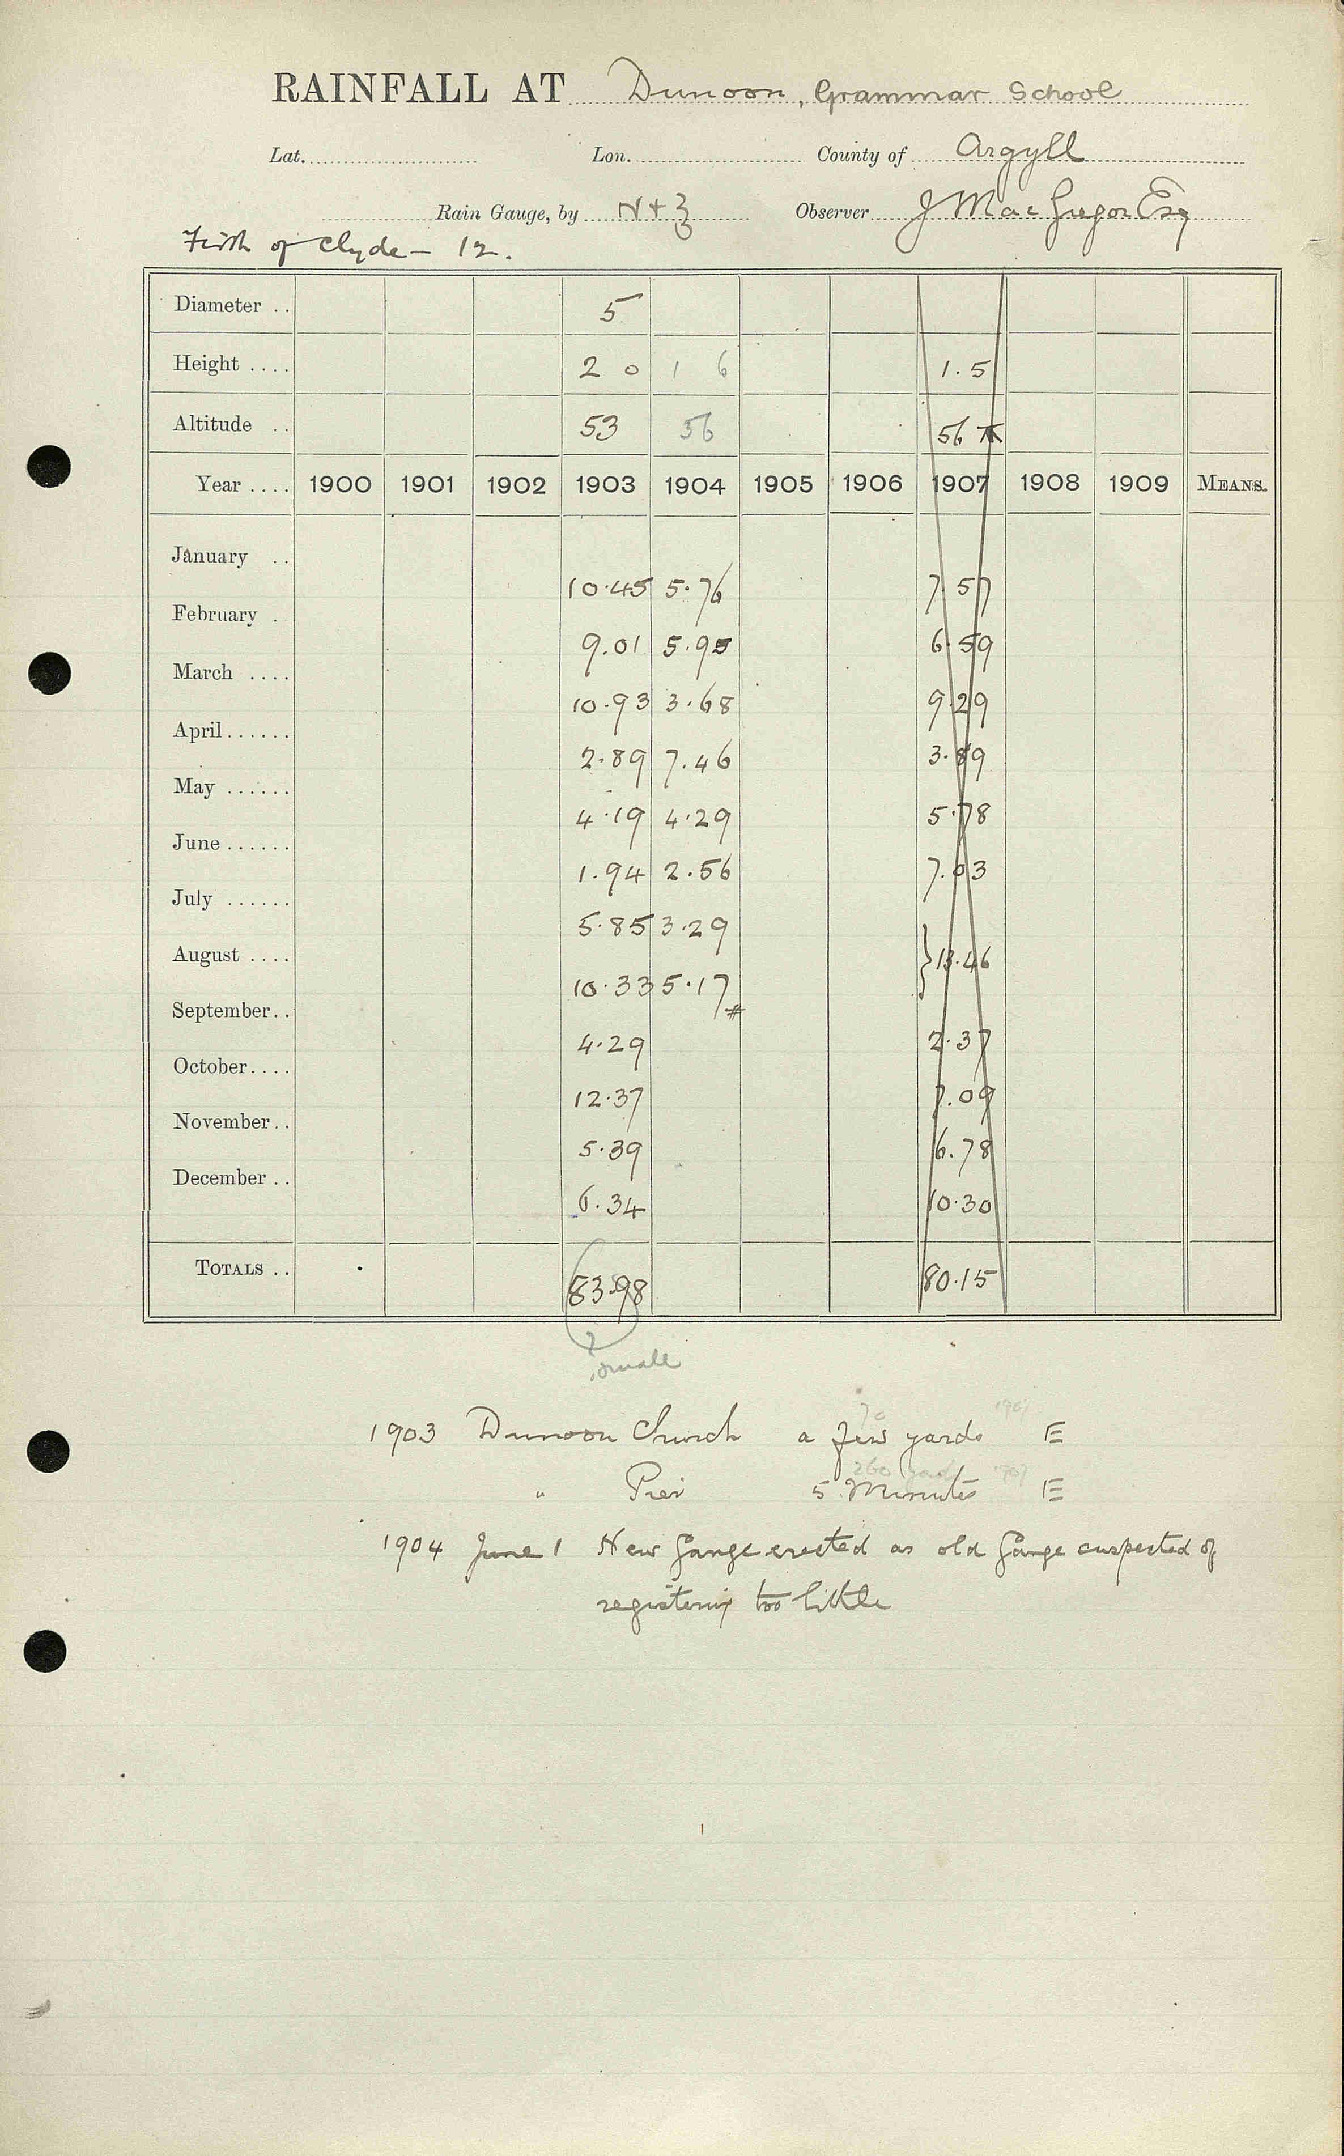 RAINFALL AT Dunoon, Grammar School
Lat. Lon. County of Argyll
Rain Gauge, by N + Z Observer J MacGregor Esq
Firth of Clyde — 12.
Diameter .. 5
Height .... 2 0 1 6 1.5
Altitude .. 53 56 56
Year .... 1900 1901 1902 1903 1904 1905 1906 1907 1908 1909 MEANS.
January .. 10.45 5.76 7.57
February . 9.01 5.95 6.59
March .... 10.93 3.68 9.29
April ...... 2.89 7.46 3.89
May ...... 4.19 4.29 5.78
June ...... 1.94 2.56 7.03
July ...... 5.85 3.29
August .... 10.33 5.17 # } 13.46
September.. 4.29 2.37
October.... 12.37 7.09
November.. 5.39 6.78
December .. 6.34 10.30
TOTALS .. 83.98 80.15
? small
70 1907
1903 Dunoon Church a few yards E
260 yards 1907
" Pier 5 Minutes E
1904 June 1 New Gauge erected as old Gauge suspected of
registering too little